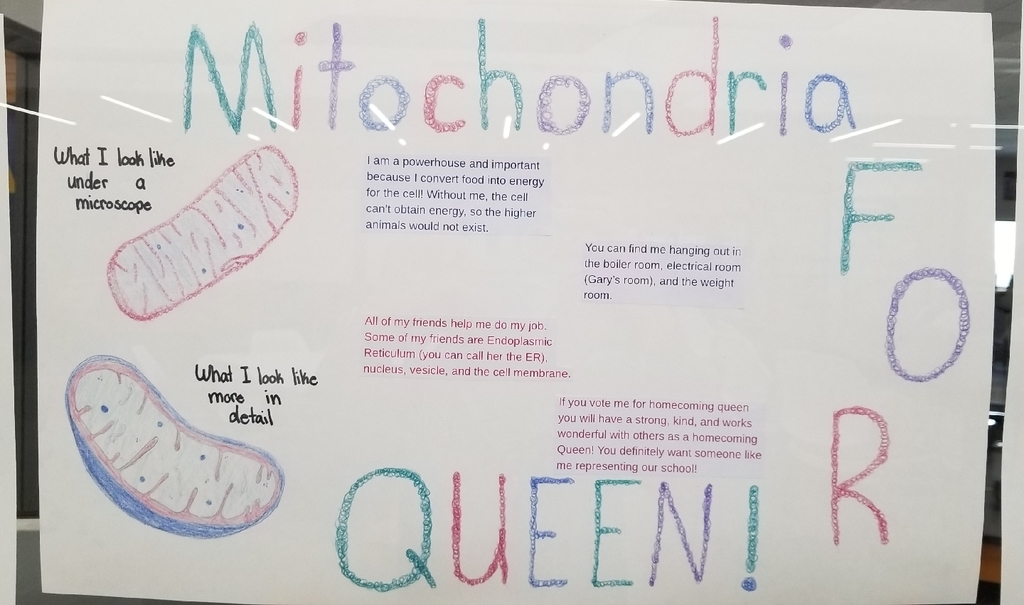 Mitochondria
FOR
QUEEN!
What I look like
under a
microscope
I am a powerhouse and important
because I convert food into energy
for the cell! Without me, the cell
can't obtain energy, so the higher
animals would not exist.
You can find me hanging out in
the boiler room, electrical room
(Gary's room), and the weight
room.
All of my friends help me do my job.
Some of my friends are Endoplasmic
Reticulum (you can call her the ER),
nucleus, vesicle, and the cell membrane.
What I look like
more in
detail
If you vote me for homecoming queen
you will have a strong, kind, and works
wonderful with others as a homecoming
Queen! You definitely want someone like
me representing our school!